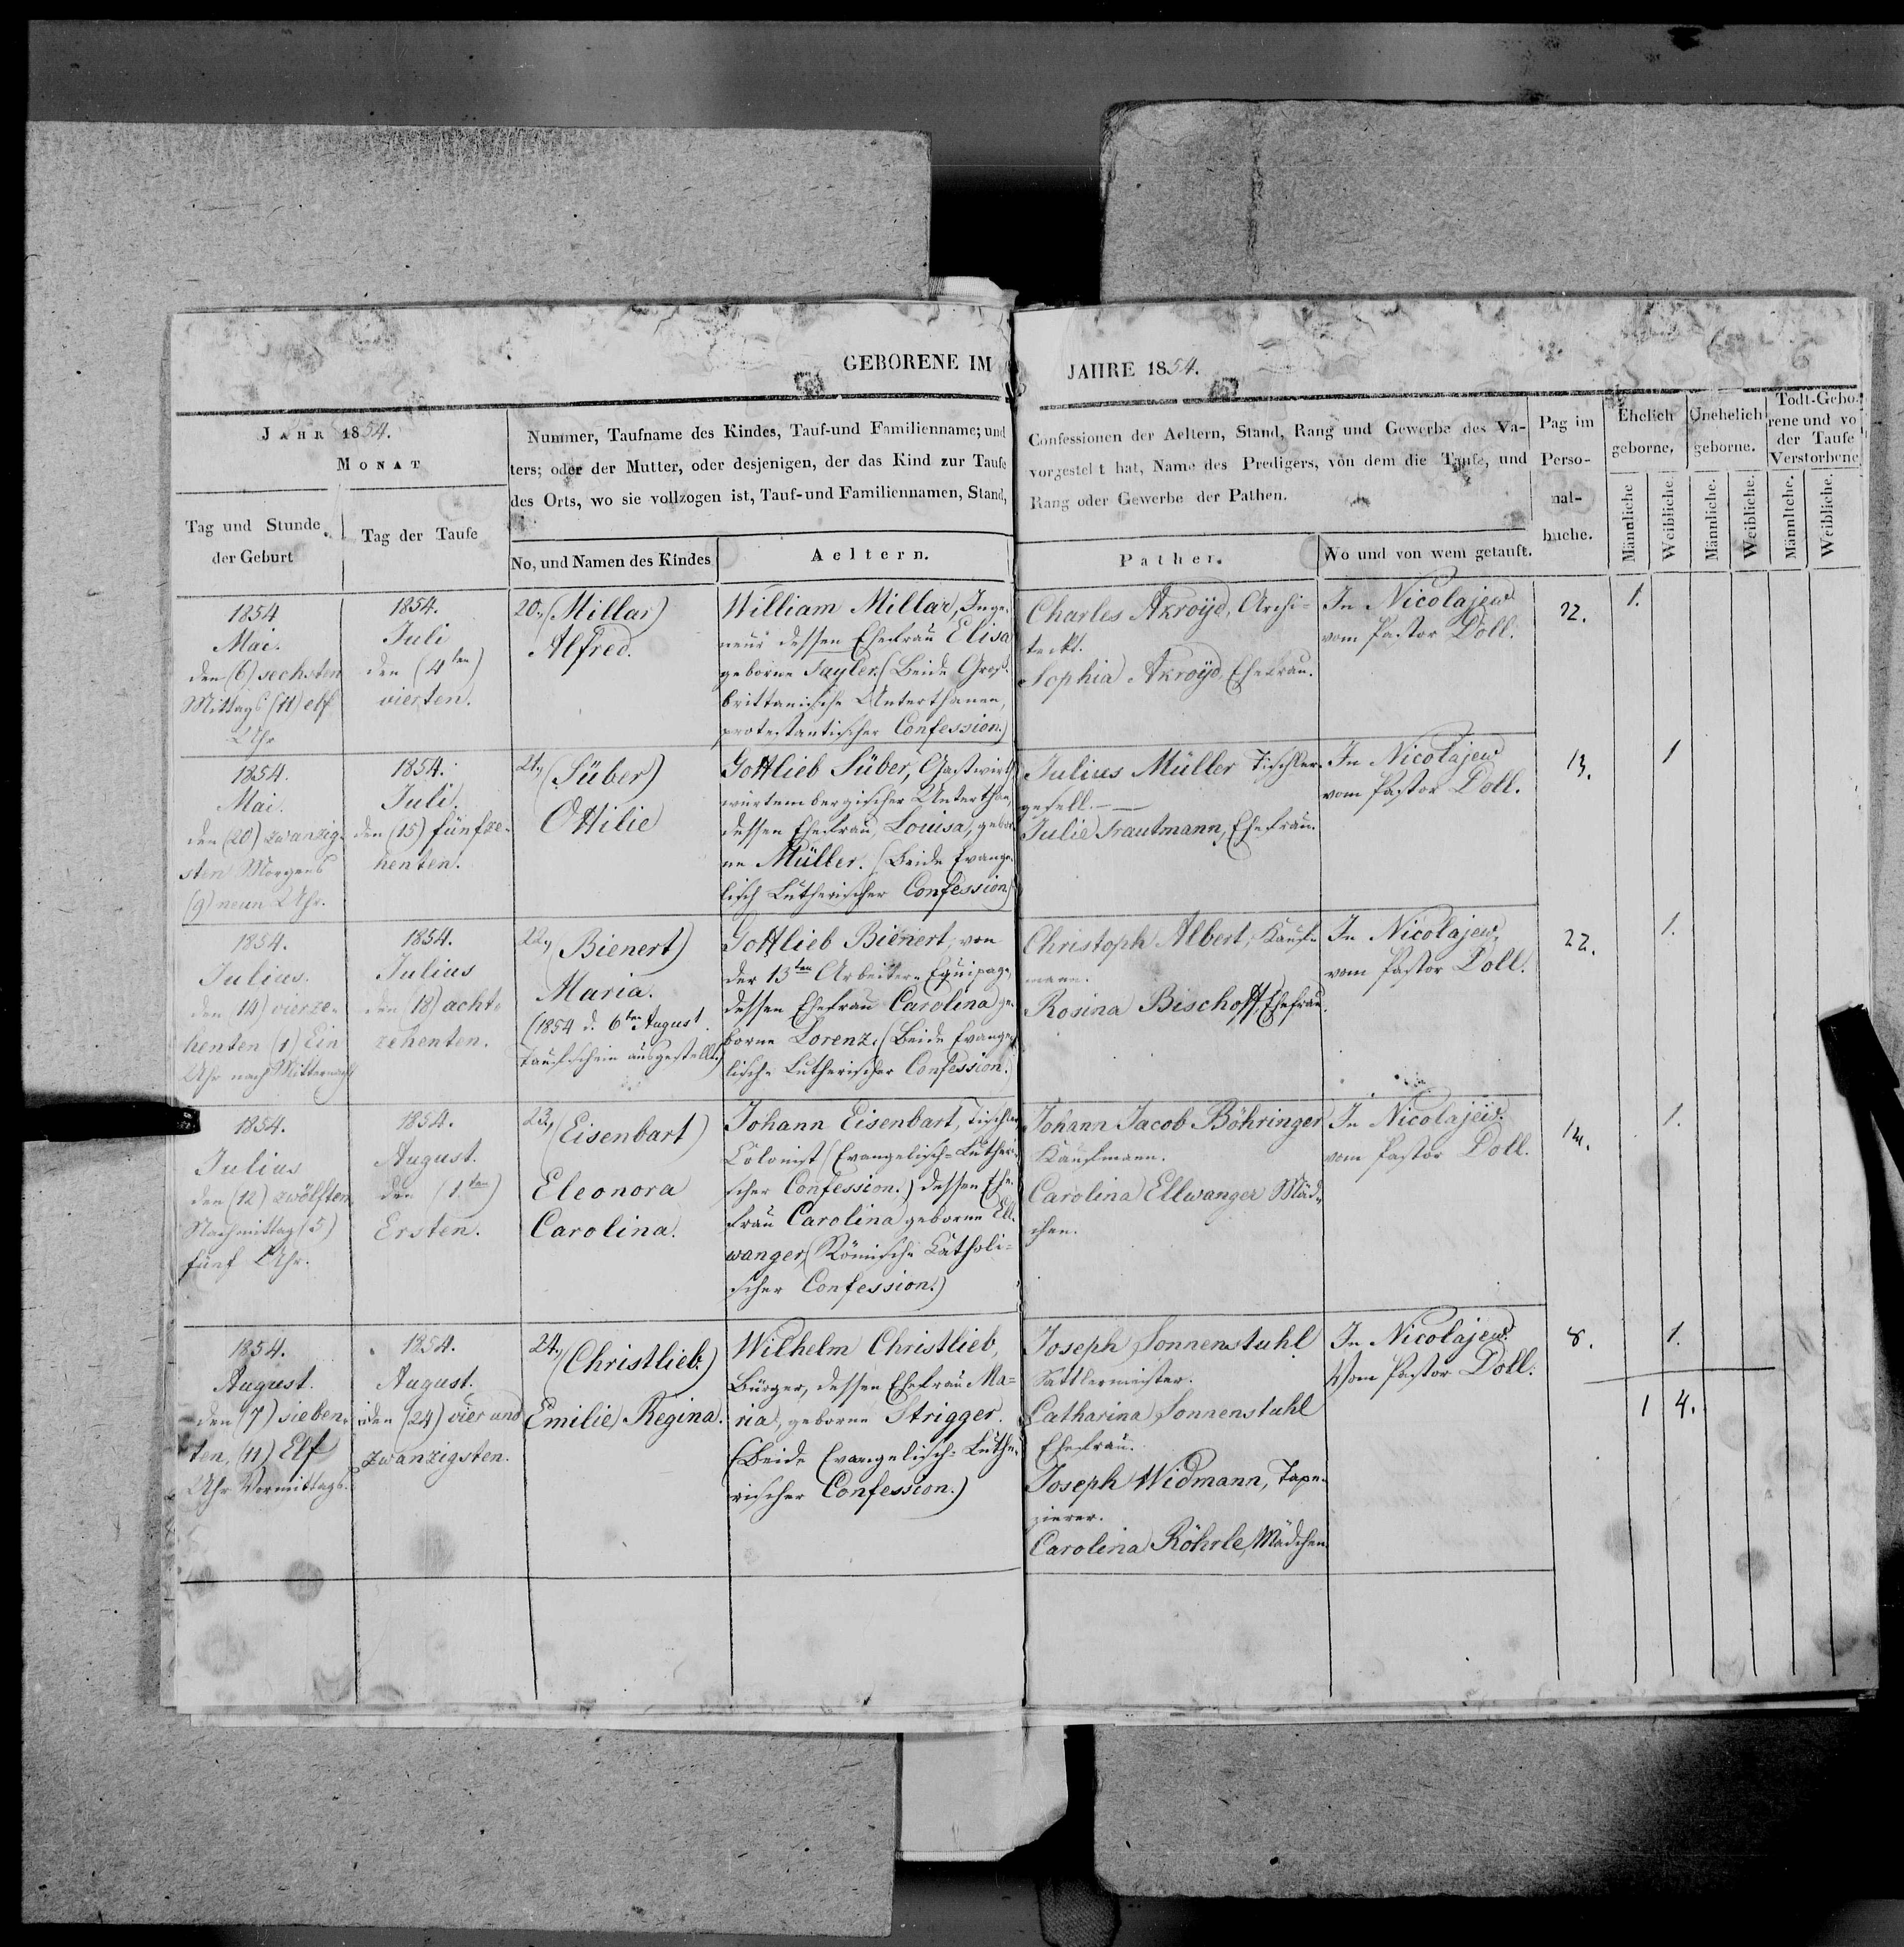 GEBORENE IM JAHRE 1854.
JAHR 1854.
MONAT
Tag und Stunde der Geburt
Tag der Taufe
Nummer, Taufname des Kindes, Tauf-und Familienname; und
ters; oder der Mutter, oder desjenigen, der das Kind zur Taufe
des Orts, wo sie vollzogen ist, Tauf-und Familiennamen, Stand,
No, und Namen des Kindes
Aeltern.
Confessionen der Aeltern, Stand, Rang und Gewerbe des Va-
vorgestelt hat, Name des Predigers, von dem die Taufe, und
Rang oder Gewerbe der Pathen.
Pather.
Wo und von wem getauft.
Pag im
Perso-
nal-
buche.
Ehelich
geborne,
Unehelich
geborne.
Todt-Gebo-
rene und vo
der Taufe
Verstorbene
Männliche
Weibliche.
Männliche.
Weibliche.
Männltche.
Weibliche.
1854
Mai.
den (6) sechsten
Mittags (11) elf
Uhr
1854.
Juli
den (4ten)
vierten.
20., (Millar)
Alfred.
William Millar, Inge-
neur dessen Ehefrau Elisa
geborne Sayler. (Beide Gros-
brittanische Unterthanen,
protestantischer Confession.)
Charles Akroyd, Archi-
teckt.
Sophia Akroyd, Ehefrau.
In Nicolajew
vom Pastor Doll.
22.
1.
1854.
Mai.
den (20) zwanzig-
sten Morgens
(9) neun Uhr.
1854.
Juli.
den (15) fünfze-
henten.
21., (Süber)
Ottilie
Gottlieb Süber, Gastwirth
würtembergischer Unterthan,
dessen Ehefrau, Louisa, gebor-
ne Müller. (Beide Evange-
lisch Lutherischer Confession)
Julius Müller Tischler-
gesell.
Julie Trautmann, Ehefrau.
In Nicolajew
vom Pastor Doll.
13.
1
1854.
Julius.
den (14) vierze-
henten (1) Ein
Uhr nach Mitternacht
1854.
Julius
den (18) acht-
zehenten.
22., (Bienert)
Maria.
(1854 d. 6ten August.
Taufschein ausgestellt.)
Gottlieb Bienert, von
der 13ten Arbeiter-Equipage,
dessen Ehefrau Carolina ge-
borne Lorenz. (Beide Evange-
lisch-Lutherischer Confession.)
Christoph Albert, Kauf-
mann.
Rosina Bischoff, Ehefrau.
In Nicolajew,
vom Pastor Doll.
22.
1.
1854.
Julius
den (12) zwölften
Nachmittag (5)
fünf Uhr.
1854.
August.
den (1.ten)
Ersten.
23., (Eisenbart)
Eleonora
Carolina.
Johann Eisenbart, Tischler,
Colonist (Evangelisch-Lutheri-
scher Confession.) dessen Ehe-
frau Carolina geborne Ell-
wanger, (Römisch-Katholi-
scher Confession.)
Johann Jacob Böhringer
Kaufmann.
Carolina Ellwanger Mäd-
chen.
In Nicolajew.
vom Pastor Doll.
1.
1854.
August.
den (7) sieben-
ten, (11) Elf
Uhr Vormittags.
1854.
August.
den (24) vier und
zwanzigsten.
24., (Christlieb)
Emilie Regina.
Wilhelm Christlieb,
Bürger, dessen Ehefrau Ma-
ria, geborne Strigger.
(Beide Evangelisch-Luthe-
rischer Confession.)
Joseph Sonnenstuhl
Sattlermeister.
Catharina Sonnenstuhl
Ehefrau.
Joseph Widmann, Tape-
zierer.
Carolina Röhrle, Mädchen
In Nicolajew.
Vom Pastor Doll.
8.
1.
1 4.